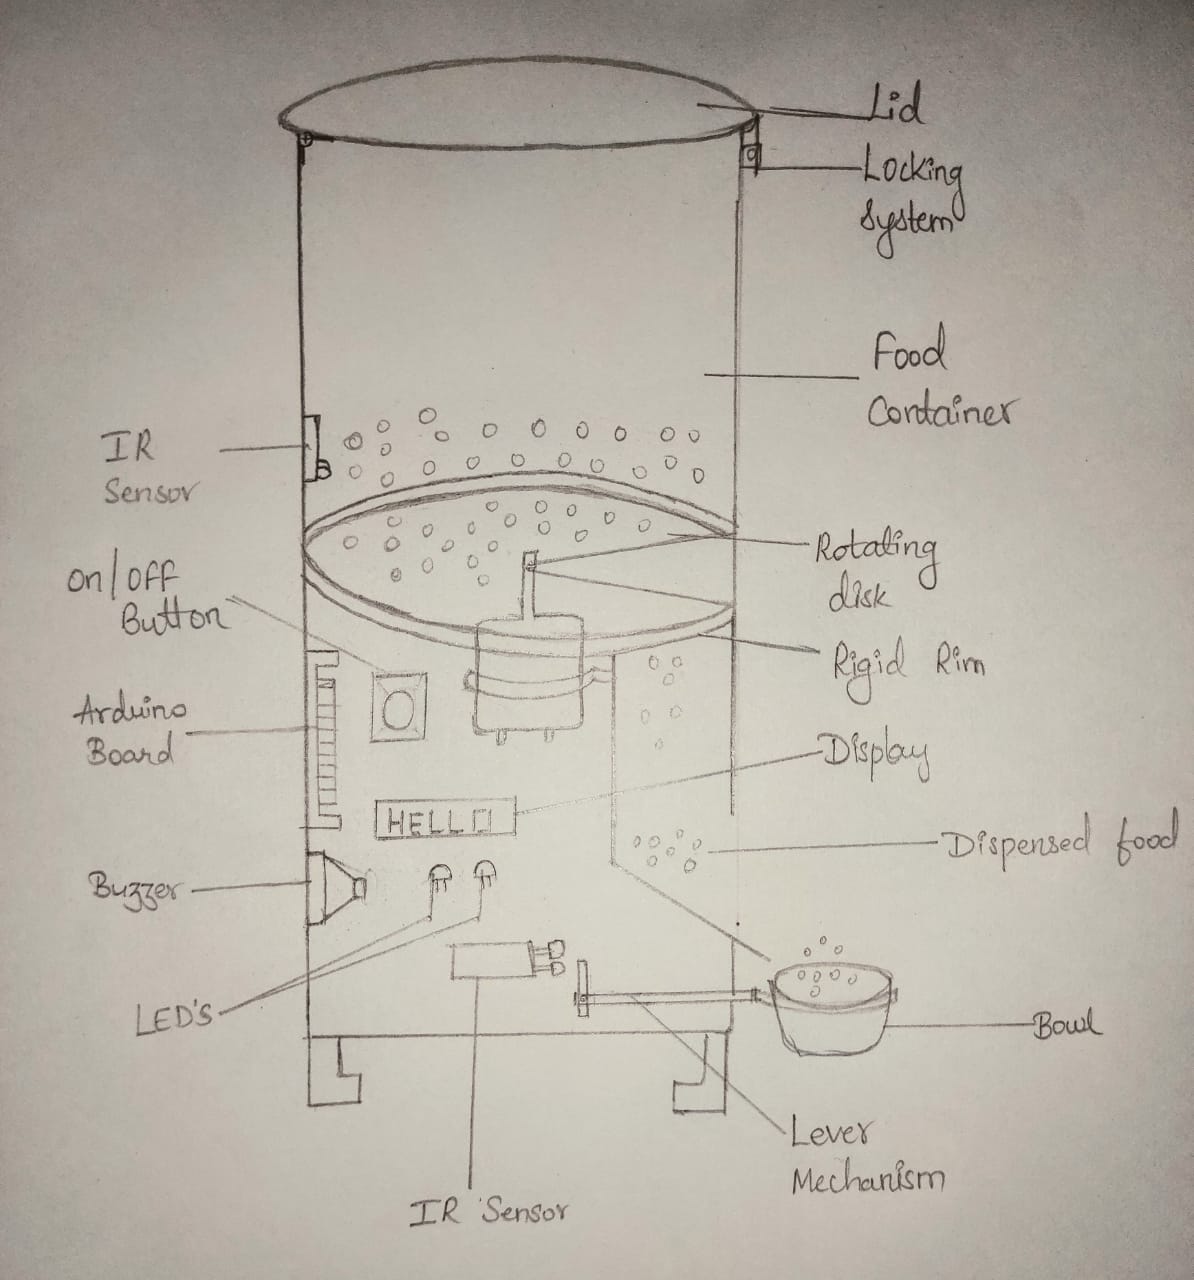 Lid
Locking
System
Food
Container
IR
Sensor
Rotating
disk
On/OFF
Button
Rigid Rim
Arduino
Board
Display
HELLO
Dispensed food
Buzzer
LED'S
Bowl
Lever
Mechanism
IR Sensor